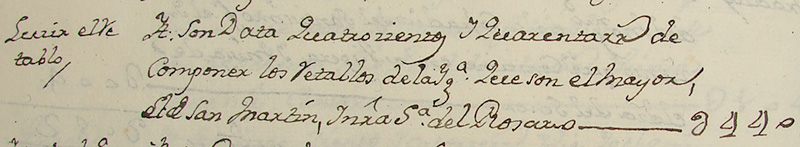 Lucir el Re
tablo,
Yt. Son Data Quatrocientos Y Quarenta rrs de
Componer los retallos de la Yga. Que son el mayor,
el de San Martin, Y nra Sa. del Rosario 0440